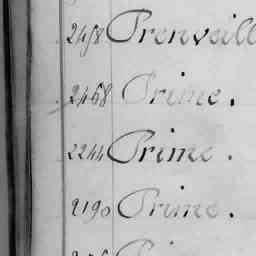 2458 Prenveill
2468 Prime.
2244 Prime.
2190 Prime.